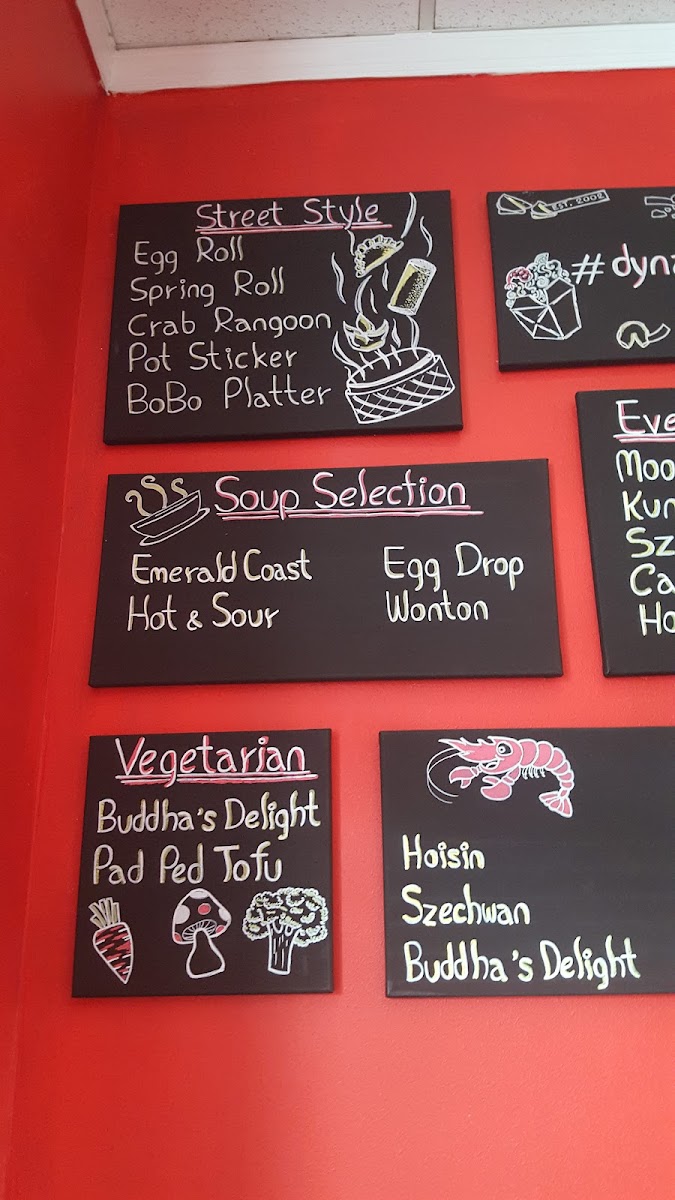 Street Style
Egg Roll
Spring Roll
Crab Rangoon
Pot Sticker
BoBo Platter
EST. 2002
#dyna
Soup Selection
Emerald Coast
Hot & Sour
Egg Drop
Wonton
Eve
Moo
Kun
Sz
Ca
Ho
Vegetarian
Buddha's Delight
Pad Ped Tofu
Hoisin
Szechwan
Buddha's Delight